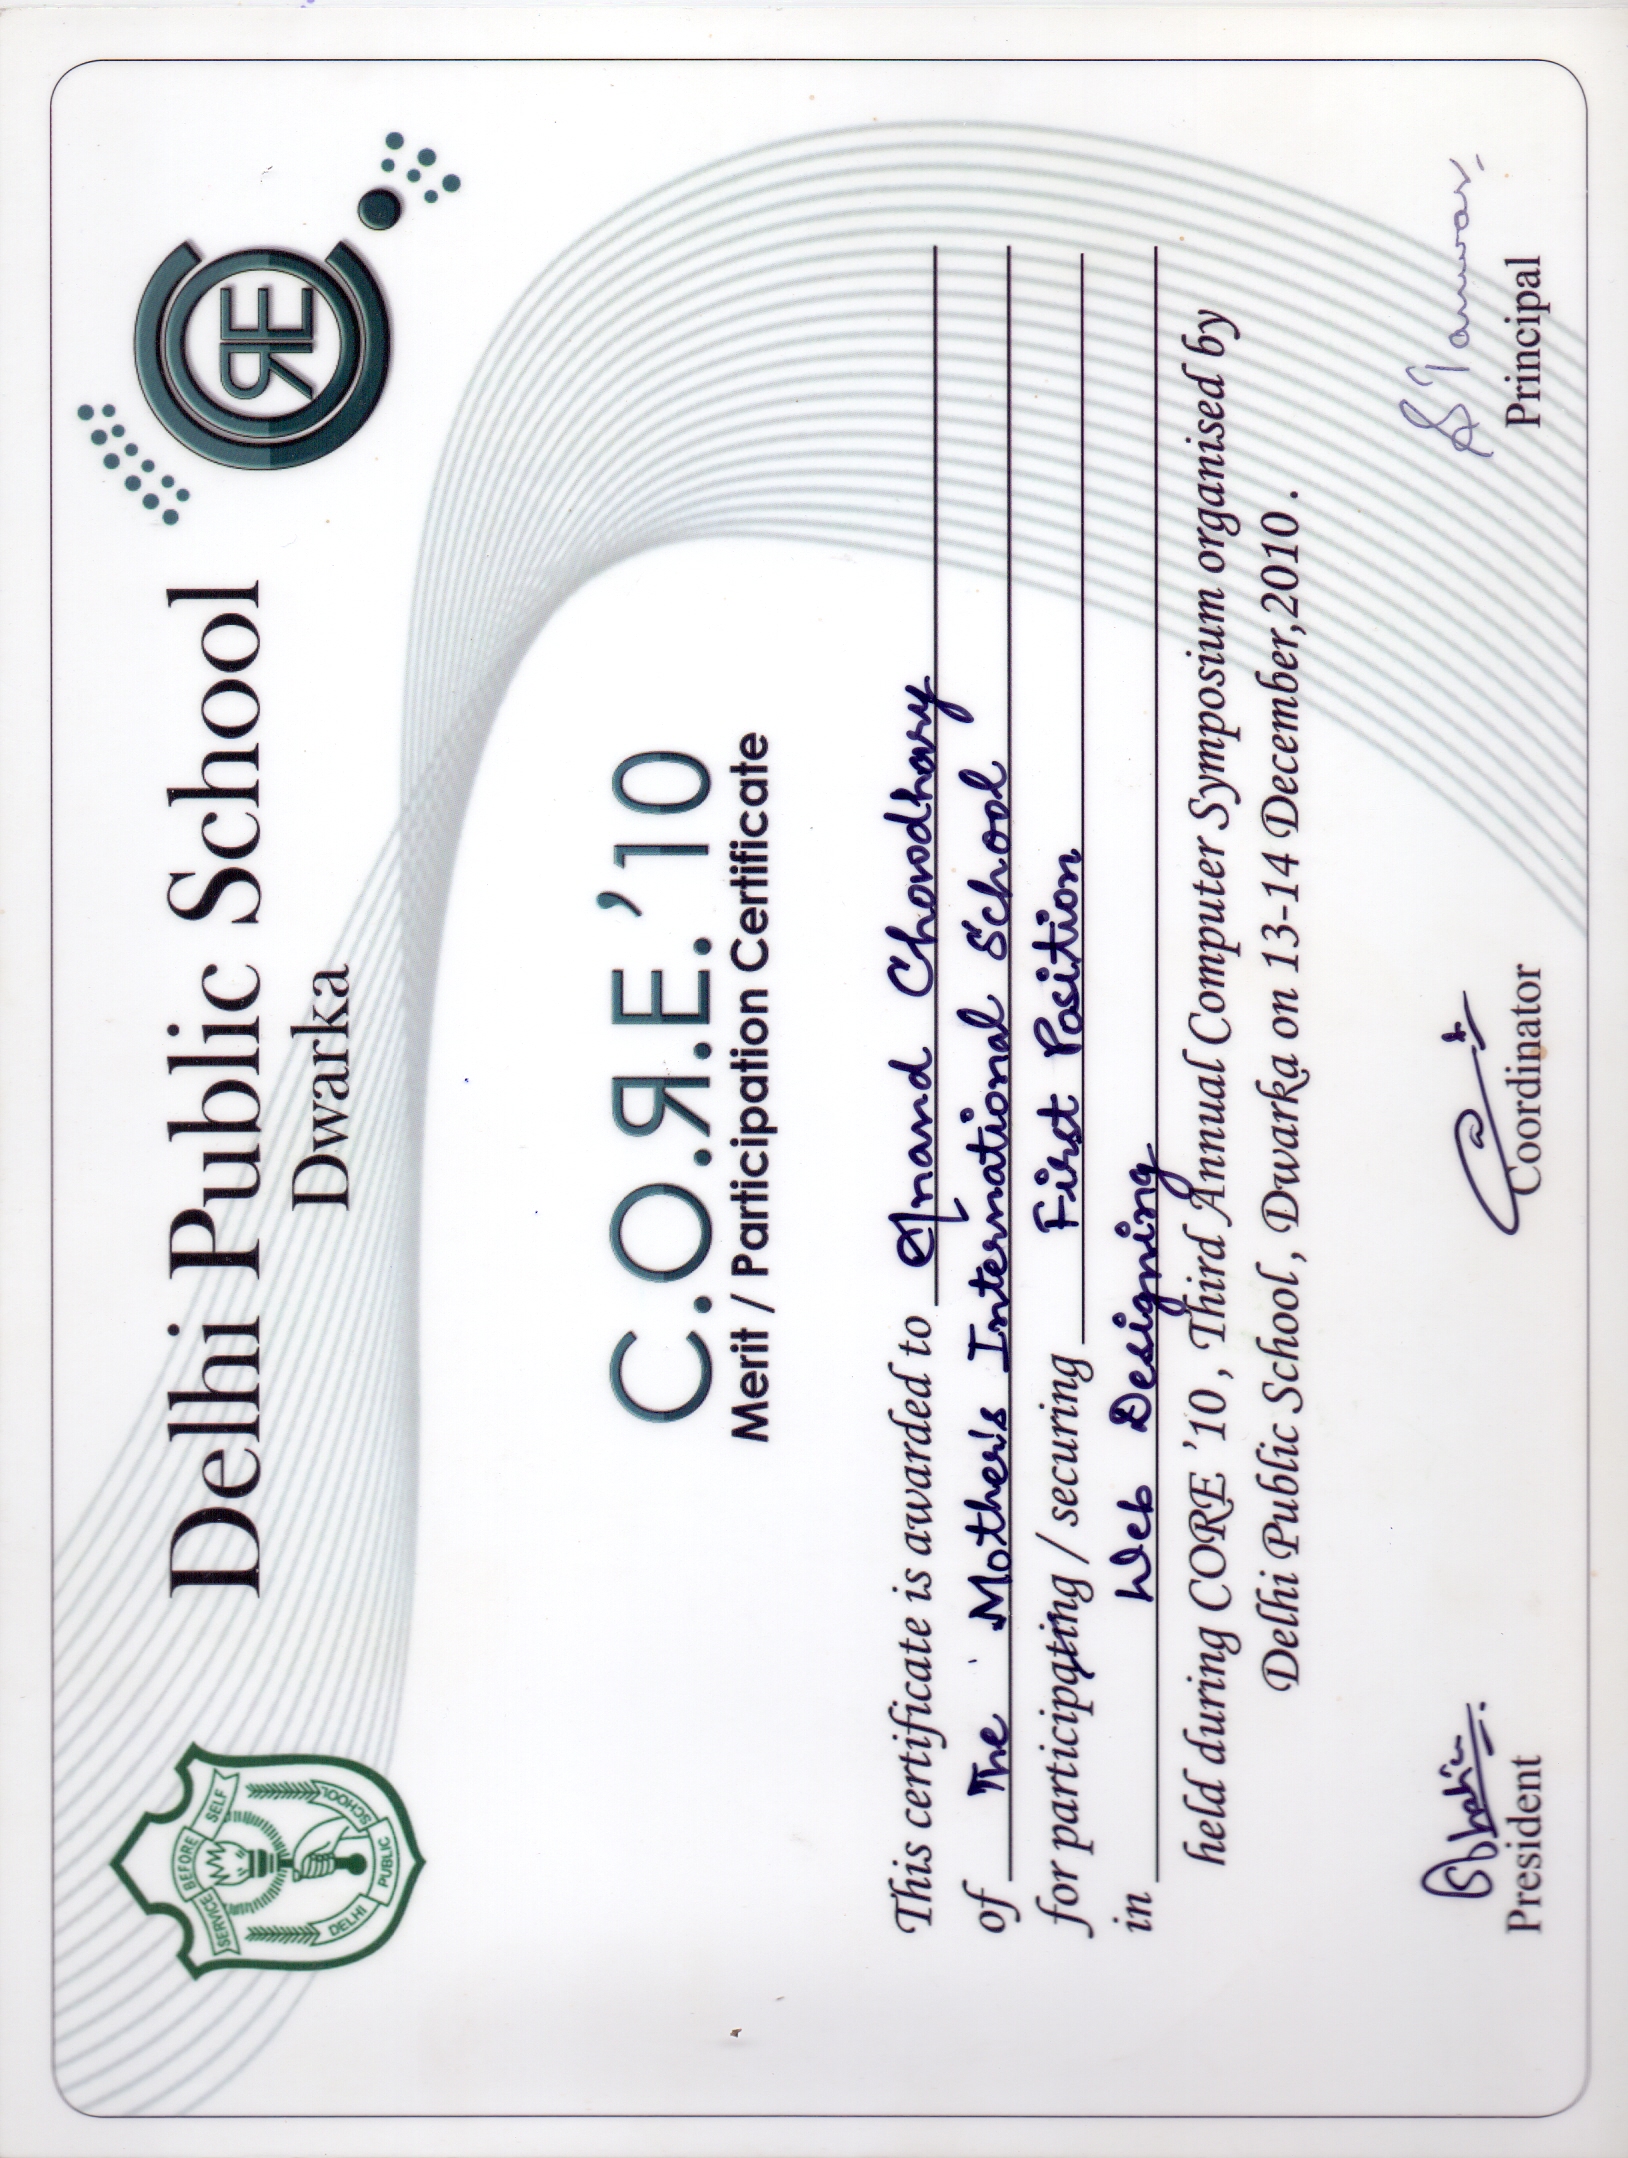 SERVICE BEFORE SELF
DELHI PUBLIC SCHOOL
Delhi Public School
Dwarka
CORE
C.O.Я.E. ’10
Merit / Participation Certificate
This certificate is awarded to Anand Chowdhary
of The Mother's International School
for participating / securing First Position
in Web Designing
held during CORE ’10 , Third Annual Computer Symposium organised by
Delhi Public School , Dwarka on 13-14 December,2010 .
S Tanwar
President
Coordinator
Principal